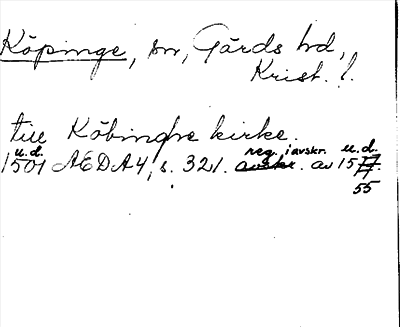 Köpinge, sn, Gärds hd,
Krist. l.
till Köbinghe kirke.
u.d.
1501 AEDA4, s. 321. reg. i avskr. av u.d. 15
55